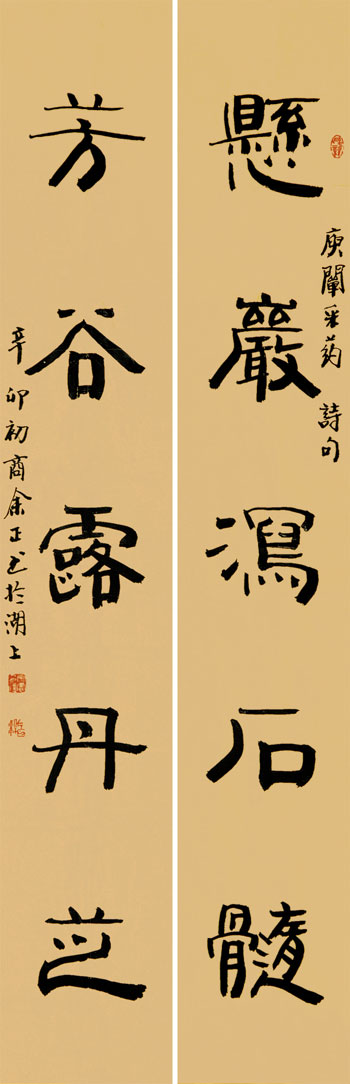 懸巖瀉石髓
庾闡采药詩句
芳谷露丹芝
辛卯初商余正书於湖上